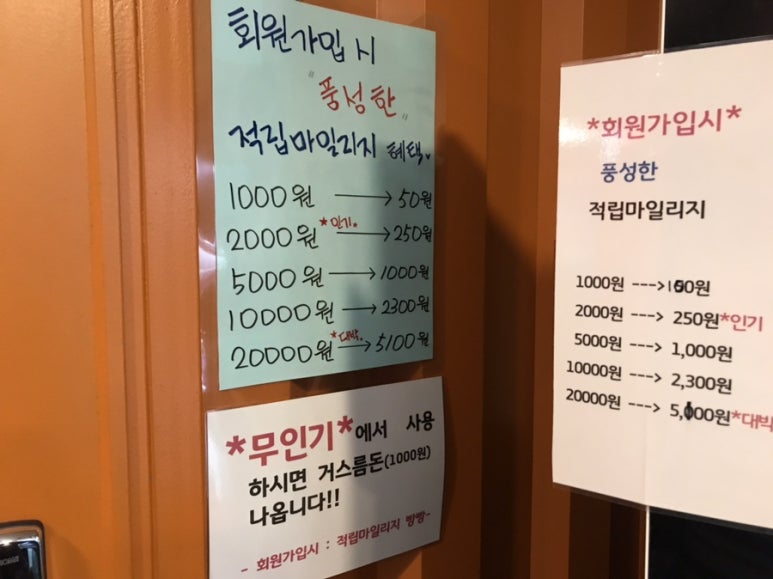 회원가입시
"풍성한"
적립마일리지 혜택
1000원 → 50원
2000원 *인기* → 250원
5000원 → 1000원
10000원 → 2300원
20000원 *대박* → 5100원
*무인기*에서 사용
하시면 거스름돈(1000원)
나옵니다!!
- 회원가입시 : 적립마일리지 빵빵-
*회원가입시*
풍성한
적립마일리지
1000원 ---> 50원
2000원 ---> 250원*인기
5000원 ---> 1,000원
10000원 ---> 2,300원
20000원 ---> 5,100원*대박